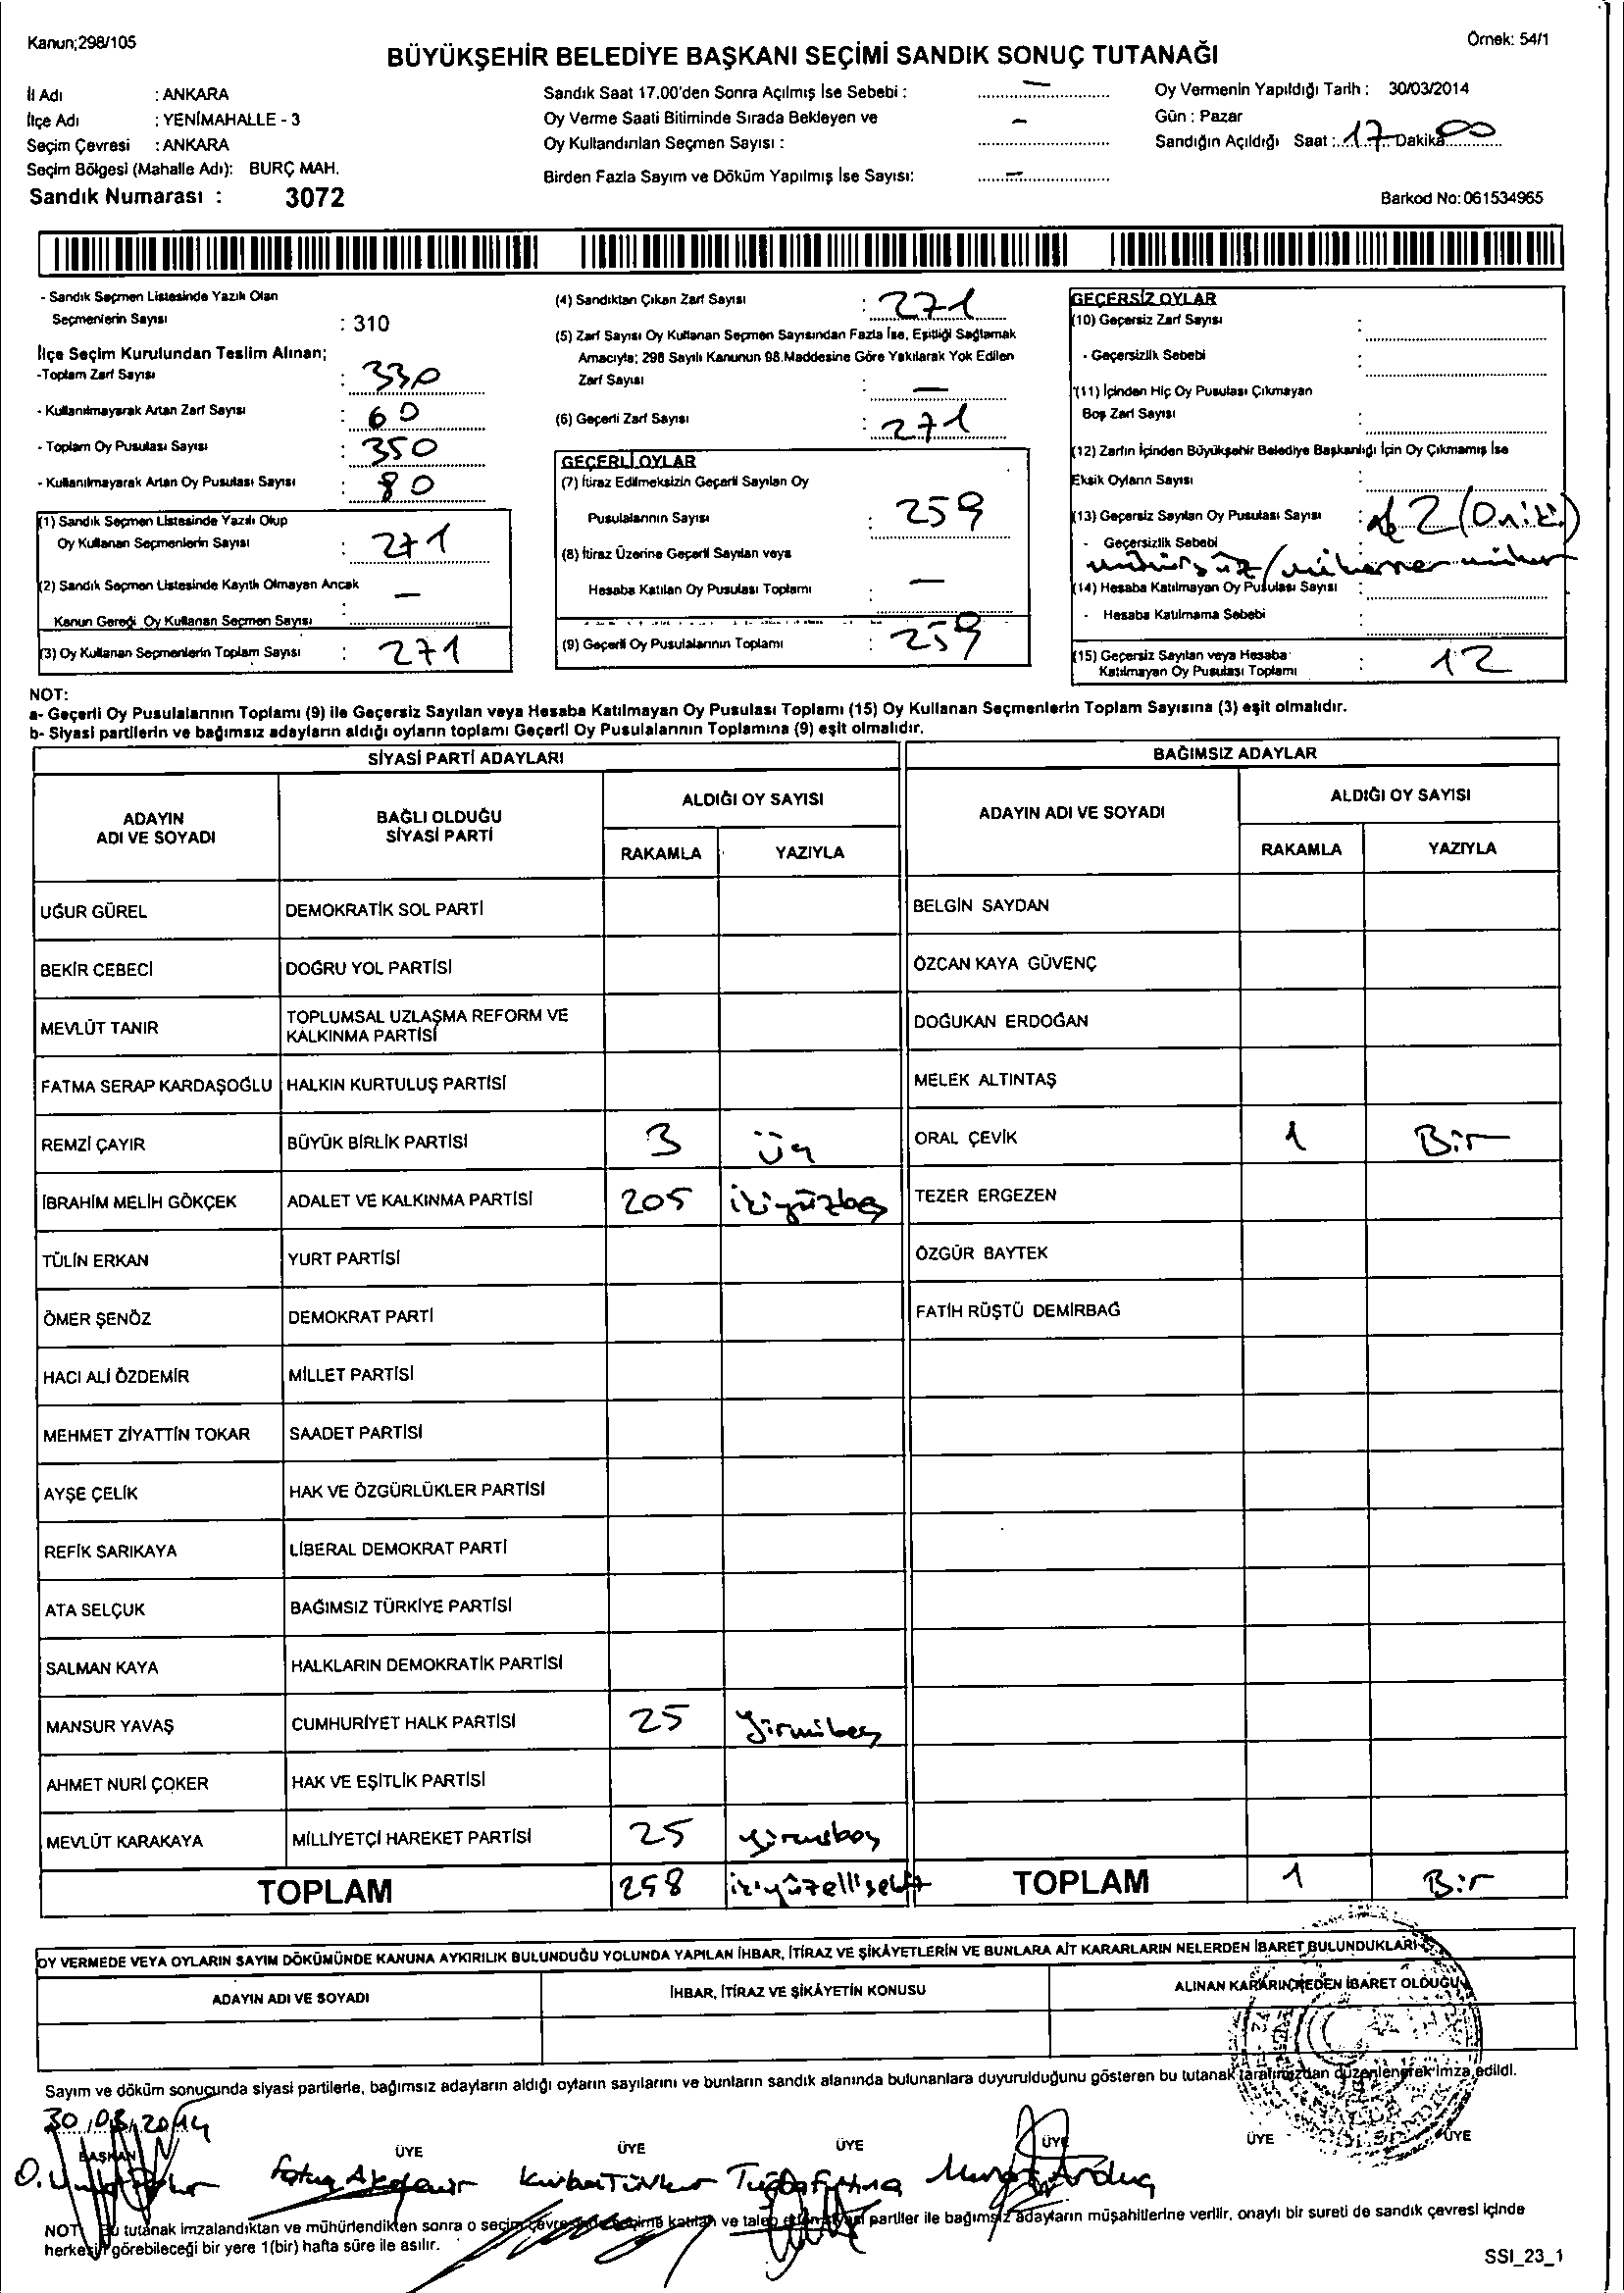 Kanun;298/105
Örnek: 54/1
BÜYÜKŞEHİR BELEDİYE BAŞKANI SEÇİMİ SANDIK SONUÇ TUTANAĞI
İl Adı : ANKARA
İlçe Adı : YENİMAHALLE - 3
Seçim Çevresi : ANKARA
Seçim Bölgesi (Mahalle Adı): BURÇ MAH.
Sandık Numarası : 3072
Sandık Saat 17.00'den Sonra Açılmış İse Sebebi : —
Oy Verme Saati Bitiminde Sırada Bekleyen ve
Oy Kullandırılan Seçmen Sayısı : —
Birden Fazla Sayım ve Döküm Yapılmış İse Sayısı: —
Oy Vermenin Yapıldığı Tarih : 30/03/2014
Gün : Pazar
Sandığın Açıldığı Saat : 17 Dakika 00
Barkod No: 061534965
- Sandık Seçmen Listesinde Yazılı Olan
Seçmenlerin Sayısı : 310
İlçe Seçim Kurulundan Teslim Alınan;
-Toplam Zarf Sayısı : 330
- Kullanılmayarak Artan Zarf Sayısı : 60
- Toplam Oy Pusulası Sayısı : 350
- Kullanılmayarak Artan Oy Pusulası Sayısı : 80
(1) Sandık Seçmen Listesinde Yazılı Olup
Oy Kullanan Seçmenlerin Sayısı : 271
(2) Sandık Seçmen Listesinde Kayıtlı Olmayan Ancak
Kanun Gereği Oy Kullanan Seçmen Sayısı : —
(3) Oy Kullanan Seçmenlerin Toplam Sayısı : 271
(4) Sandıktan Çıkan Zarf Sayısı : 271
(5) Zarf Sayısı Oy Kullanan Seçmen Sayısından Fazla İse, Eşitliği Sağlamak
Amacıyla; 298 Sayılı Kanunun 98.Maddesine Göre Yakılarak Yok Edilen
Zarf Sayısı : —
(6) Geçerli Zarf Sayısı : 271
GEÇERLİ OYLAR
(7) İtiraz Edilmeksizin Geçerli Sayılan Oy
Pusulalarının Sayısı : 259
(8) İtiraz Üzerine Geçerli Sayılan veya
Hesaba Katılan Oy Pusulası Toplamı : —
(9) Geçerli Oy Pusulalarının Toplamı : 259
GEÇERSİZ OYLAR
(10) Geçersiz Zarf Sayısı :
- Geçersizlik Sebebi :
(11) İçinden Hiç Oy Pusulası Çıkmayan
Boş Zarf Sayısı :
(12) Zarfın İçinden Büyükşehir Belediye Başkanlığı İçin Oy Çıkmamış İse
Eksik Oyların Sayısı :
(13) Geçersiz Sayılan Oy Pusulası Sayısı : 12 (Oniki)
- Geçersizlik Sebebi :
mühürsüz/mükerrer mühür
(14) Hesaba Katılmayan Oy Pusulası Sayısı :
- Hesaba Katılmama Sebebi :
(15) Geçersiz Sayılan veya Hesaba
Katılmayan Oy Pusulası Toplamı : 12
NOT:
a- Geçerli Oy Pusulalarının Toplamı (9) ile Geçersiz Sayılan veya Hesaba Katılmayan Oy Pusulası Toplamı (15) Oy Kullanan Seçmenlerin Toplam Sayısına (3) eşit olmalıdır.
b- Siyasi partilerin ve bağımsız adayların aldığı oyların toplamı Geçerli Oy Pusulalarının Toplamına (9) eşit olmalıdır.
SİYASİ PARTİ ADAYLARI
ADAYIN
ADI VE SOYADI
BAĞLI OLDUĞU
SİYASİ PARTİ
ALDIĞI OY SAYISI
RAKAMLA YAZIYLA
UĞUR GÜREL DEMOKRATİK SOL PARTİ
BEKİR CEBECİ DOĞRU YOL PARTİSİ
MEVLÜT TANIR TOPLUMSAL UZLAŞMA REFORM VE
KALKINMA PARTİSİ
FATMA SERAP KARDAŞOĞLU HALKIN KURTULUŞ PARTİSİ
REMZİ ÇAYIR BÜYÜK BİRLİK PARTİSİ 3 Üç
İBRAHİM MELİH GÖKÇEK ADALET VE KALKINMA PARTİSİ 205 ikiyüzbeş
TÜLİN ERKAN YURT PARTİSİ
ÖMER ŞENÖZ DEMOKRAT PARTİ
HACI ALİ ÖZDEMİR MİLLET PARTİSİ
MEHMET ZİYATTİN TOKAR SAADET PARTİSİ
AYŞE ÇELİK HAK VE ÖZGÜRLÜKLER PARTİSİ
REFİK SARIKAYA LİBERAL DEMOKRAT PARTİ
ATA SELÇUK BAĞIMSIZ TÜRKİYE PARTİSİ
SALMAN KAYA HALKLARIN DEMOKRATİK PARTİSİ
MANSUR YAVAŞ CUMHURİYET HALK PARTİSİ 25 yirmibeş
AHMET NURİ ÇOKER HAK VE EŞİTLİK PARTİSİ
MEVLÜT KARAKAYA MİLLİYETÇİ HAREKET PARTİSİ 25 yirmibeş
TOPLAM 258 ikiyüzellisekiz
BAĞIMSIZ ADAYLAR
ADAYIN ADI VE SOYADI
ALDIĞI OY SAYISI
RAKAMLA YAZIYLA
BELGİN SAYDAN
ÖZCAN KAYA GÜVENÇ
DOĞUKAN ERDOĞAN
MELEK ALTINTAŞ
ORAL ÇEVİK 1 Bir
TEZER ERGEZEN
ÖZGÜR BAYTEK
FATİH RÜŞTÜ DEMİRBAĞ
TOPLAM 1 Bir
OY VERMEDE VEYA OYLARIN SAYIM DÖKÜMÜNDE KANUNA AYKIRILIK BULUNDUĞU YOLUNDA YAPILAN İHBAR, İTİRAZ VE ŞİKÂYETLERİN VE BUNLARA AİT KARARLARIN NELERDEN İBARET BULUNDUKLARI
ADAYIN ADI VE SOYADI İHBAR, İTİRAZ VE ŞİKÂYETİN KONUSU ALINAN KARARIN NEDEN İBARET OLDUĞU
Sayım ve döküm sonucunda siyasi partilerle, bağımsız adayların aldığı oyların sayılarını ve bunların sandık alanında bulunanlara duyurulduğunu gösteren bu tutanak tarafımızdan düzenlenerek imza edildi.
30.03.2014
BAŞKAN ÜYE ÜYE ÜYE ÜYE ÜYE ÜYE
NOT: Bu tutanak imzalandıktan ve mühürlendikten sonra o seçim çevresinde seçime katılan ve talep eden siyasi partiler ile bağımsız adayların müşahitlerine verilir, onaylı bir sureti de sandık çevresi içinde
herkesin görebileceği bir yere 1(bir) hafta süre ile asılır.
SSI_23_1